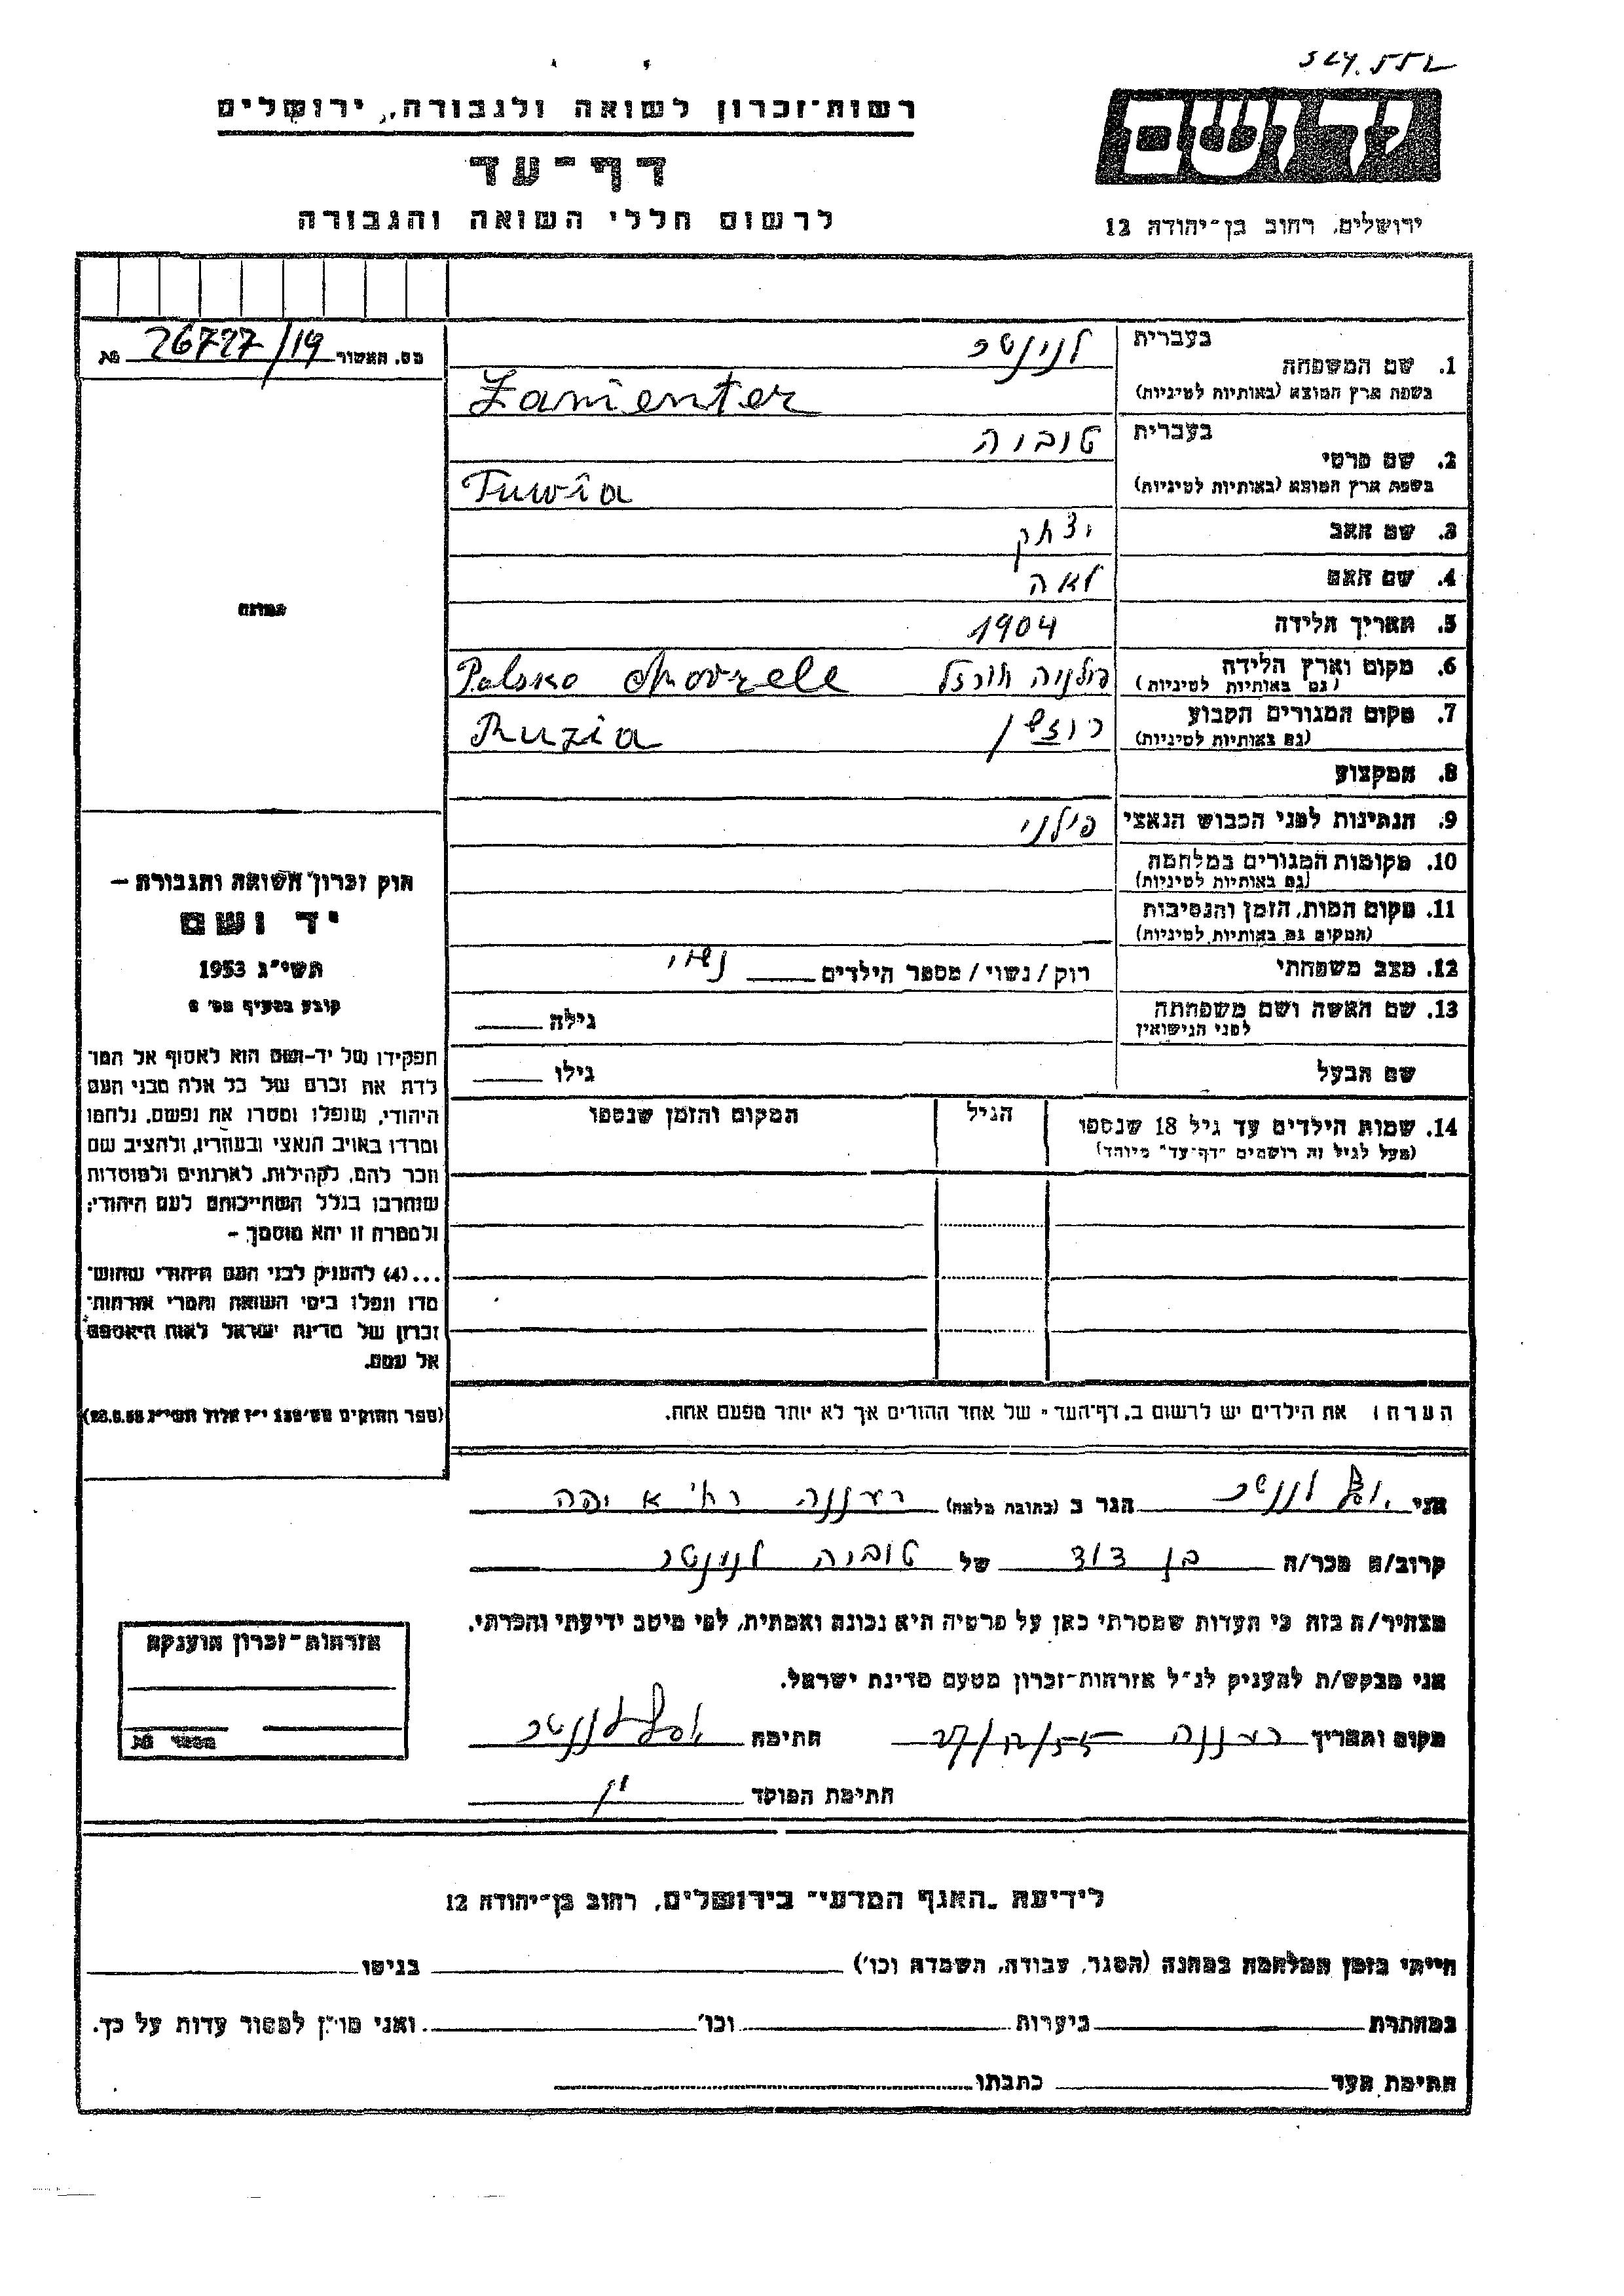 רשות-זכרון לשואה ולגבורה, ירושלים
דף-עד
לרשום חללי השואה והגבורה
יד ושם
ירושלים, רחוב בן-יהודה 12
מס. האשור 26727/19
1. שם המשפחה
בעברית
בשפת ארץ המוצא (באותיות לטיניות) Łanienter
2. שם פרטי
בעברית טוביה
בשפת ארץ המוצא (באותיות לטיניות) Tuwia
3. שם האב יצחק
4. שם האם לאה
5. תאריך הלידה 1904
6. מקום וארץ הלידה
(גם באותיות לטיניות) פולניה חורזל Polsko Chorzele
7. מקום המגורים הקבוע
(גם באותיות לטיניות) רוזשן Ruzia
8. המקצוע
9. הנתינות לפני הכבוש הנאצי פולני
10. מקומות המגורים במלחמה
(גם באותיות לטיניות)
11. מקום המות, הזמן והנסיבות
(המקום גם באותיות לטיניות)
12. מצב משפחתי רוק/נשוי/מספר הילדים נשוי
13. שם האשה ושם משפחתה
לפני הנישואין
גילה
שם הבעל גילו
14. שמות הילדים עד גיל 18 שנספו
(מעל לגיל זה רושמים "דף-עד" מיוחד)
הגיל
המקום והזמן שנספו
הערה: את הילדים יש לרשום ב"דף-העד" של אחד ההורים אך לא יותר מפעם אחת.
תמונה
חוק זכרון השואה והגבורה –
יד ושם
תשי"ג 1953
קובע בסעיף מס' 2
תפקידו של יד-ושם הוא לאסוף אל המו־
לדת את זכרם של כל אלה מבני העם
היהודי, שנפלו ומסרו את נפשם, נלחמו
ומרדו באויב הנאצי ובעוזריו, ולהציב שם
וזכר להם, לקהילות, לארגונים ולמוסדות
שנחרבו בגלל השתייכותם לעם היהודי;
ולמטרה זו יהא מוסמך –
...(4) להעניק לבני העם היהודי שהוש־
מדו ונפלו בימי השואה והמרי אזרחות־
זכרון של מדינת ישראל לאות היאספם
אל עמם.
(ספר החוקים מס' 132 י"ז אלול תשי"ג 28.8.53)
אני הגר ב (כתובת מלאה) רעננה
קרוב/ה מכר/ה בן דוד של טוביה
מצהיר/ה בזה כי העדות שמסרתי כאן על פרטיה היא נכונה ואמתית, לפי מיטב ידיעתי והכרתי.
אני מבקש/ת להעניק לנ"ל אזרחות-זכרון מטעם מדינת ישראל.
מקום ותאריך רעננה 27/12/55 חתימה
חתימת הפוקד
אזרחות-זכרון הוענקה
מספר
לידיעת "האגף המדעי" בירושלים, רחוב בן-יהודה 12
הייתי בזמן המלחמה במחנה (הסגר, עבודה, השמדה וכו') בגיטו
במחתרת ביערות וכו' ואני מוכן למסור עדות על כך.
חתימת העד כתבתו